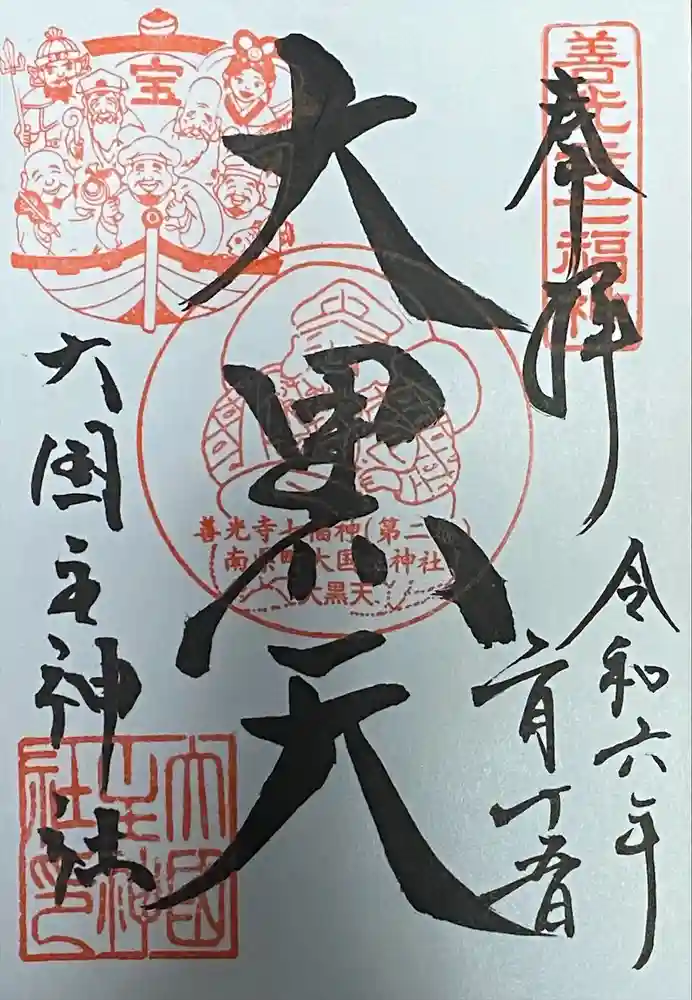 奉拝
令和六年
二月十五日
大黒天
大国主神社
善光寺七福神
宝
善光寺七福神(第二
南県町大国主神社
大黒天